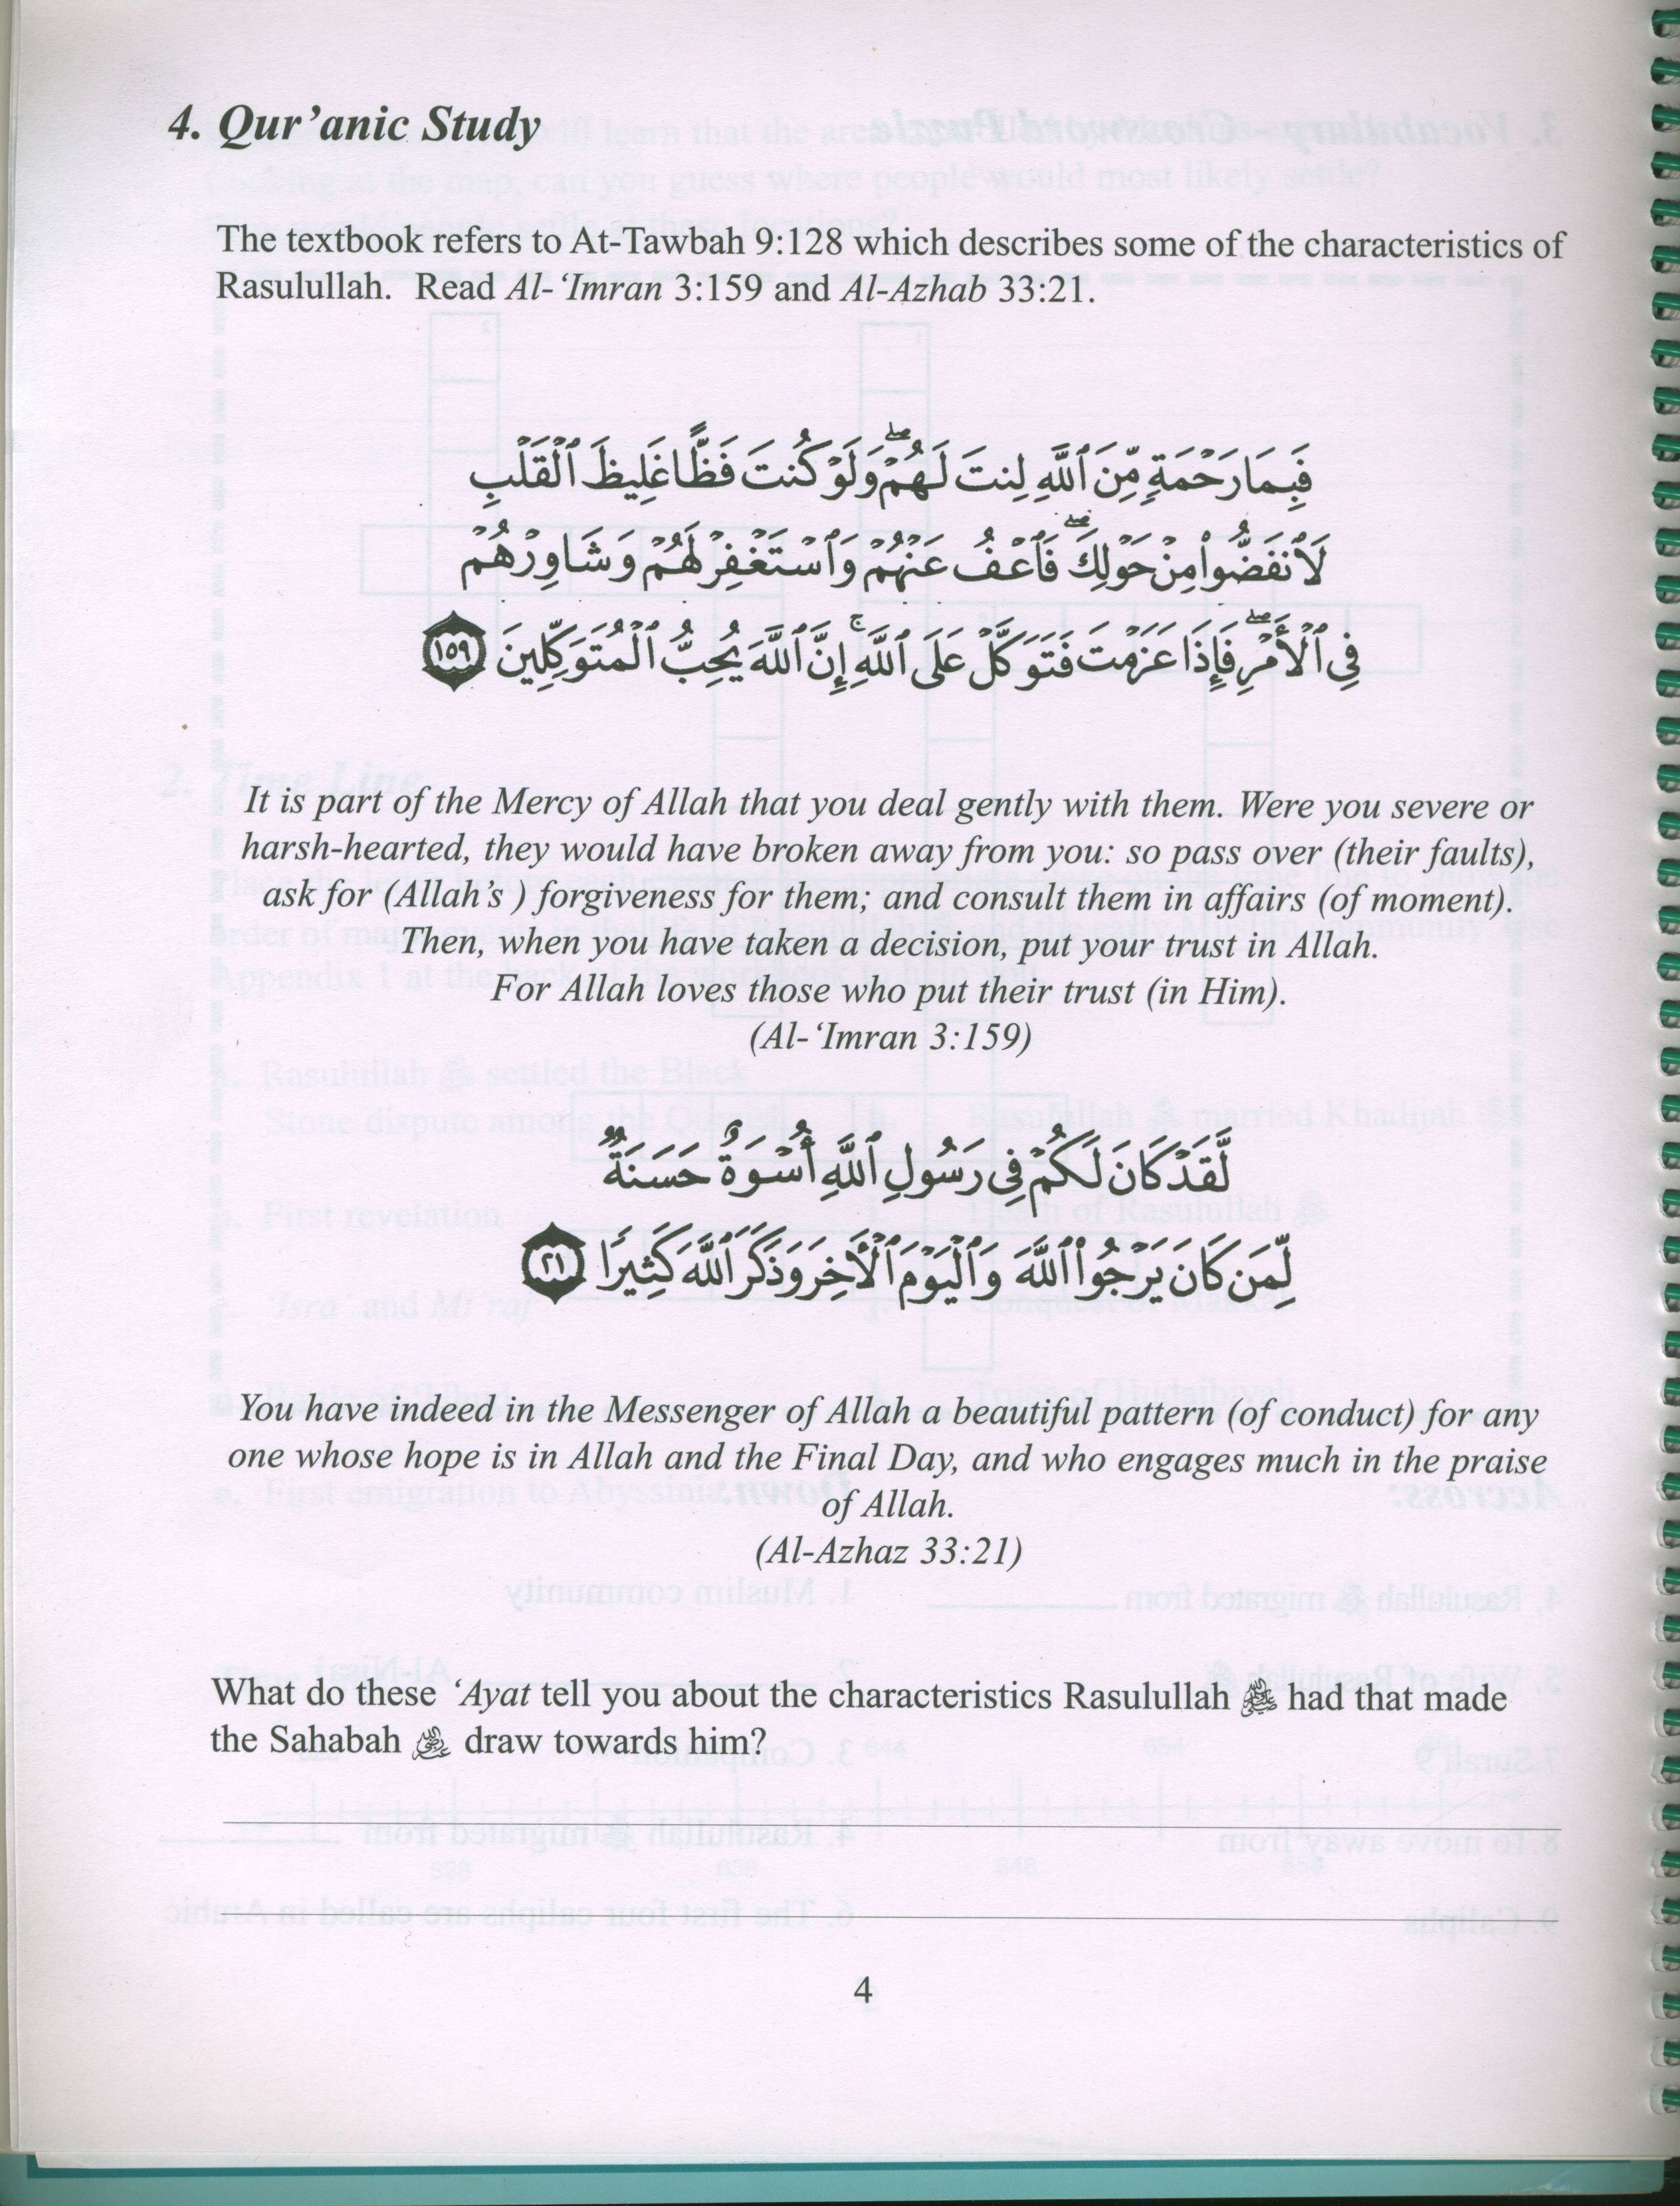 4. Qur'anic Study
The textbook refers to At-Tawbah 9:128 which describes some of the characteristics of
Rasulullah. Read Al-‘Imran 3:159 and Al-Azhab 33:21.
فَبِمَا رَحْمَةٍ مِّنَ ٱللَّهِ لِنتَ لَهُمْ ۖ وَلَوْ كُنتَ فَظًّا غَلِيظَ ٱلْقَلْبِ
لَٱنفَضُّوا۟ مِنْ حَوْلِكَ ۖ فَٱعْفُ عَنْهُمْ وَٱسْتَغْفِرْ لَهُمْ وَشَاوِرْهُمْ
فِى ٱلْأَمْرِ ۖ فَإِذَا عَزَمْتَ فَتَوَكَّلْ عَلَى ٱللَّهِ ۚ إِنَّ ٱللَّهَ يُحِبُّ ٱلْمُتَوَكِّلِينَ ١٥٩
It is part of the Mercy of Allah that you deal gently with them. Were you severe or
harsh-hearted, they would have broken away from you: so pass over (their faults),
ask for (Allah’s ) forgiveness for them; and consult them in affairs (of moment).
Then, when you have taken a decision, put your trust in Allah.
For Allah loves those who put their trust (in Him).
(Al-‘Imran 3:159)
لَّقَدْ كَانَ لَكُمْ فِى رَسُولِ ٱللَّهِ أُسْوَةٌ حَسَنَةٌ
لِّمَن كَانَ يَرْجُوا۟ ٱللَّهَ وَٱلْيَوْمَ ٱلْـَٔاخِرَ وَذَكَرَ ٱللَّهَ كَثِيرًا ٢١
You have indeed in the Messenger of Allah a beautiful pattern (of conduct) for any
one whose hope is in Allah and the Final Day, and who engages much in the praise
of Allah.
(Al-Azhaz 33:21)
What do these ‘Ayat tell you about the characteristics Rasulullah ﷺ had that made
the Sahabah draw towards him?
4